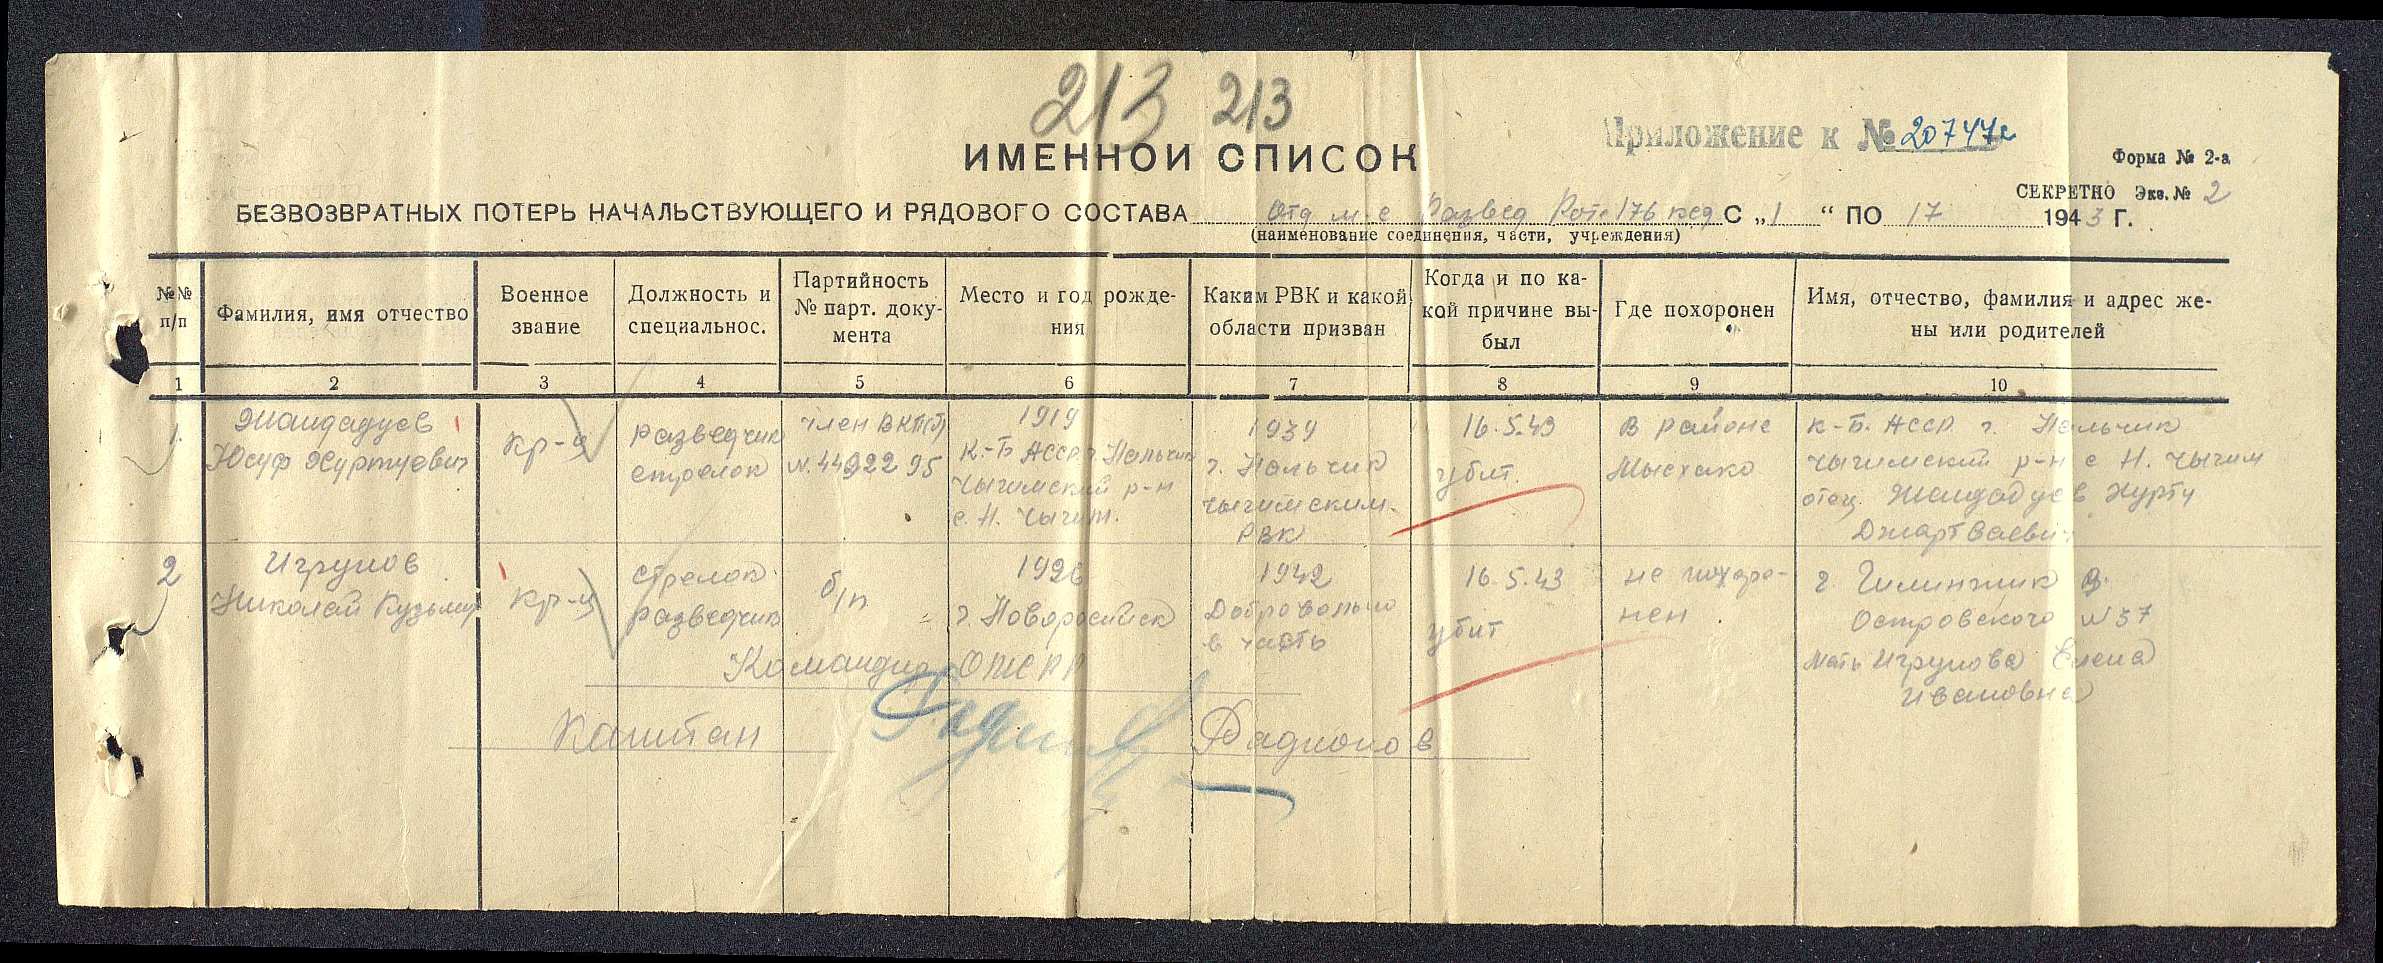 213 213
Приложение к № 20747с
ИМЕННОЙ СПИСОК
Форма № 2-а
СЕКРЕТНО Экз. № 2
БЕЗВОЗВРАТНЫХ ПОТЕРЬ НАЧАЛЬСТВУЮЩЕГО И РЯДОВОГО СОСТАВА Отд м.с Развед Роте 176 ксд С „1 “ ПО 17 1943 Г.
(наименование соединения, части, учреждения)
№№ п/п
Фамилия, имя отчество
Военное
звание
Должность и
специальнос.
Партийность
№ парт. доку-
мента
Место и год рожде-
ния
Каким РВК и какой
области призван
Когда и по ка-
кой причине вы-
был
Где похоронен
Имя, отчество, фамилия и адрес же-
ны или родителей
1 2 3 4 5 6 7 8 9 10
1.
Жандадуев
Юсуф Хуртуевич
Кр-ц
разведчик
стрелок
член ВКП(б)
N. 4492295
1919
К.-Б АССР г Нальчик
Чыгимский р-н
с. Н. Чыгим.
1939
г. Нальчик
Чыгимским.
РВК
16.5.43
убит.
В районе
Мысхако
К-Б. АССР г. Нальчик
Чыгимский р-н с Н. Чыгим
отец. Жандадуев Хурту
2
Игрунов
Николай Кузьмич
Кр-ц
стрелок
разведчик
б/п
1926
г. Новоросийск
1942
Добровольно
в часть
16.5.43
убит
не похоро-
нен
г. Гилинжик
Островского N 37
Мать Игрунова Елена
Ивановна
Командир ОМСРР
Капитан Радионов